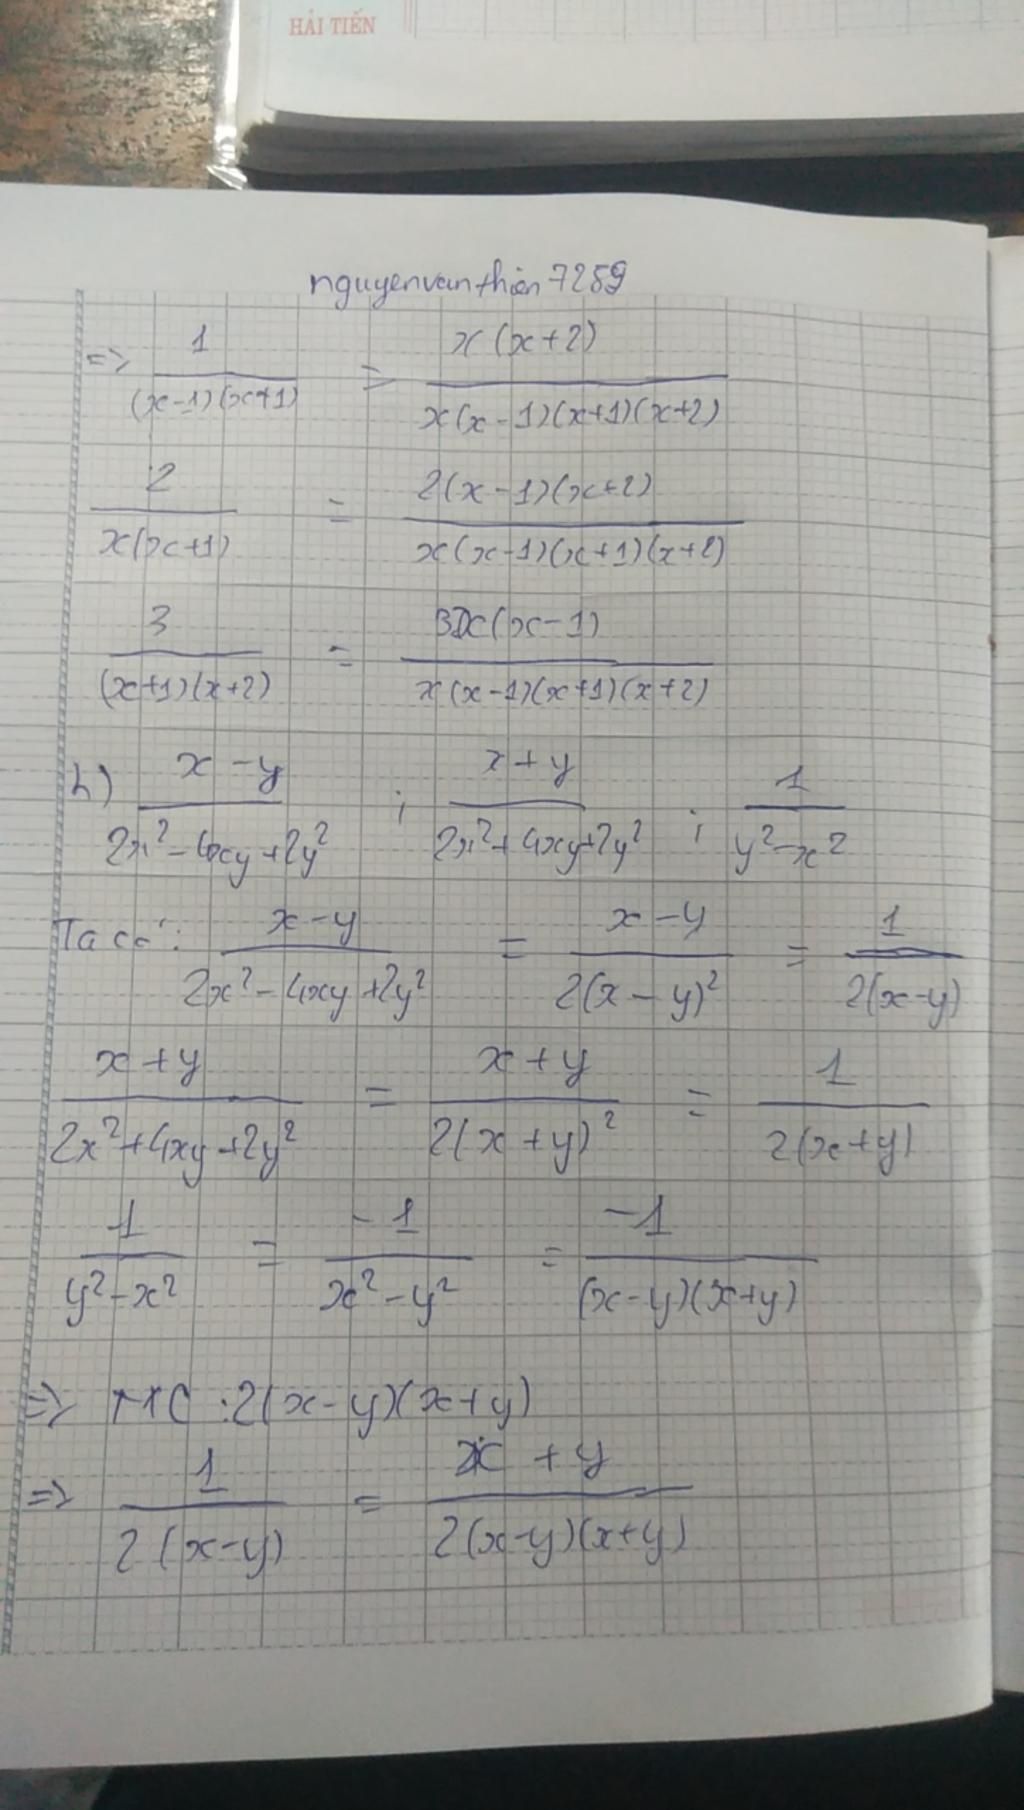 HẢI TIẾN
nguyenvanthien7259
=> 1/((x-1)(x+1)) = x(x+2)/(x(x-1)(x+1)(x+2))
2/(x(x+1)) = 2(x-1)(x+2)/(x(x-1)(x+1)(x+2))
3/((x+1)(x+2)) = 3x(x-1)/(x(x-1)(x+1)(x+2))
h) (x-y)/(2x²-4xy+2y²) ; (x+y)/(2x²+4xy+2y²) ; 1/(y²-x²)
Ta có: (x-y)/(2x²-4xy+2y²) = (x-y)/(2(x-y)²) = 1/(2(x-y))
(x+y)/(2x²+4xy+2y²) = (x+y)/(2(x+y)²) = 1/(2(x+y))
1/(y²-x²) = -1/(x²-y²) = -1/((x-y)(x+y))
=> MTC : 2(x-y)(x+y)
=> 1/(2(x-y)) = (x+y)/(2(x-y)(x+y))